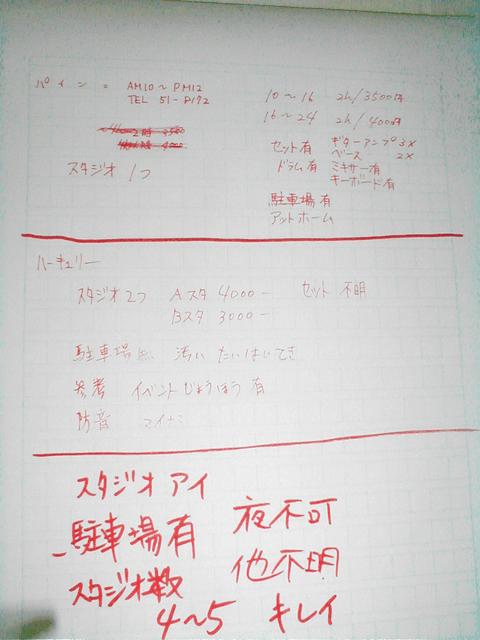 パイン = AM10～PM12
TEL 51-8172
スタジオ 1つ
10～16 2h/3500円
16～24 2h/400円
セット有 ギターアンプ3×
ベース 2×
ドラム有 ミキサー有
キーボード有
駐車場有
アットホーム
ハーキュリー
スタジオ2つ Aスタ 4000- セット 不明
Bスタ 3000-
駐車場無 汚い たいはいてき
参考 イベントじょうほう 有
防音 マイナミ
スタジオ アイ
駐車場有 夜不可
スタジオ数 他不明
4～5 キレイ